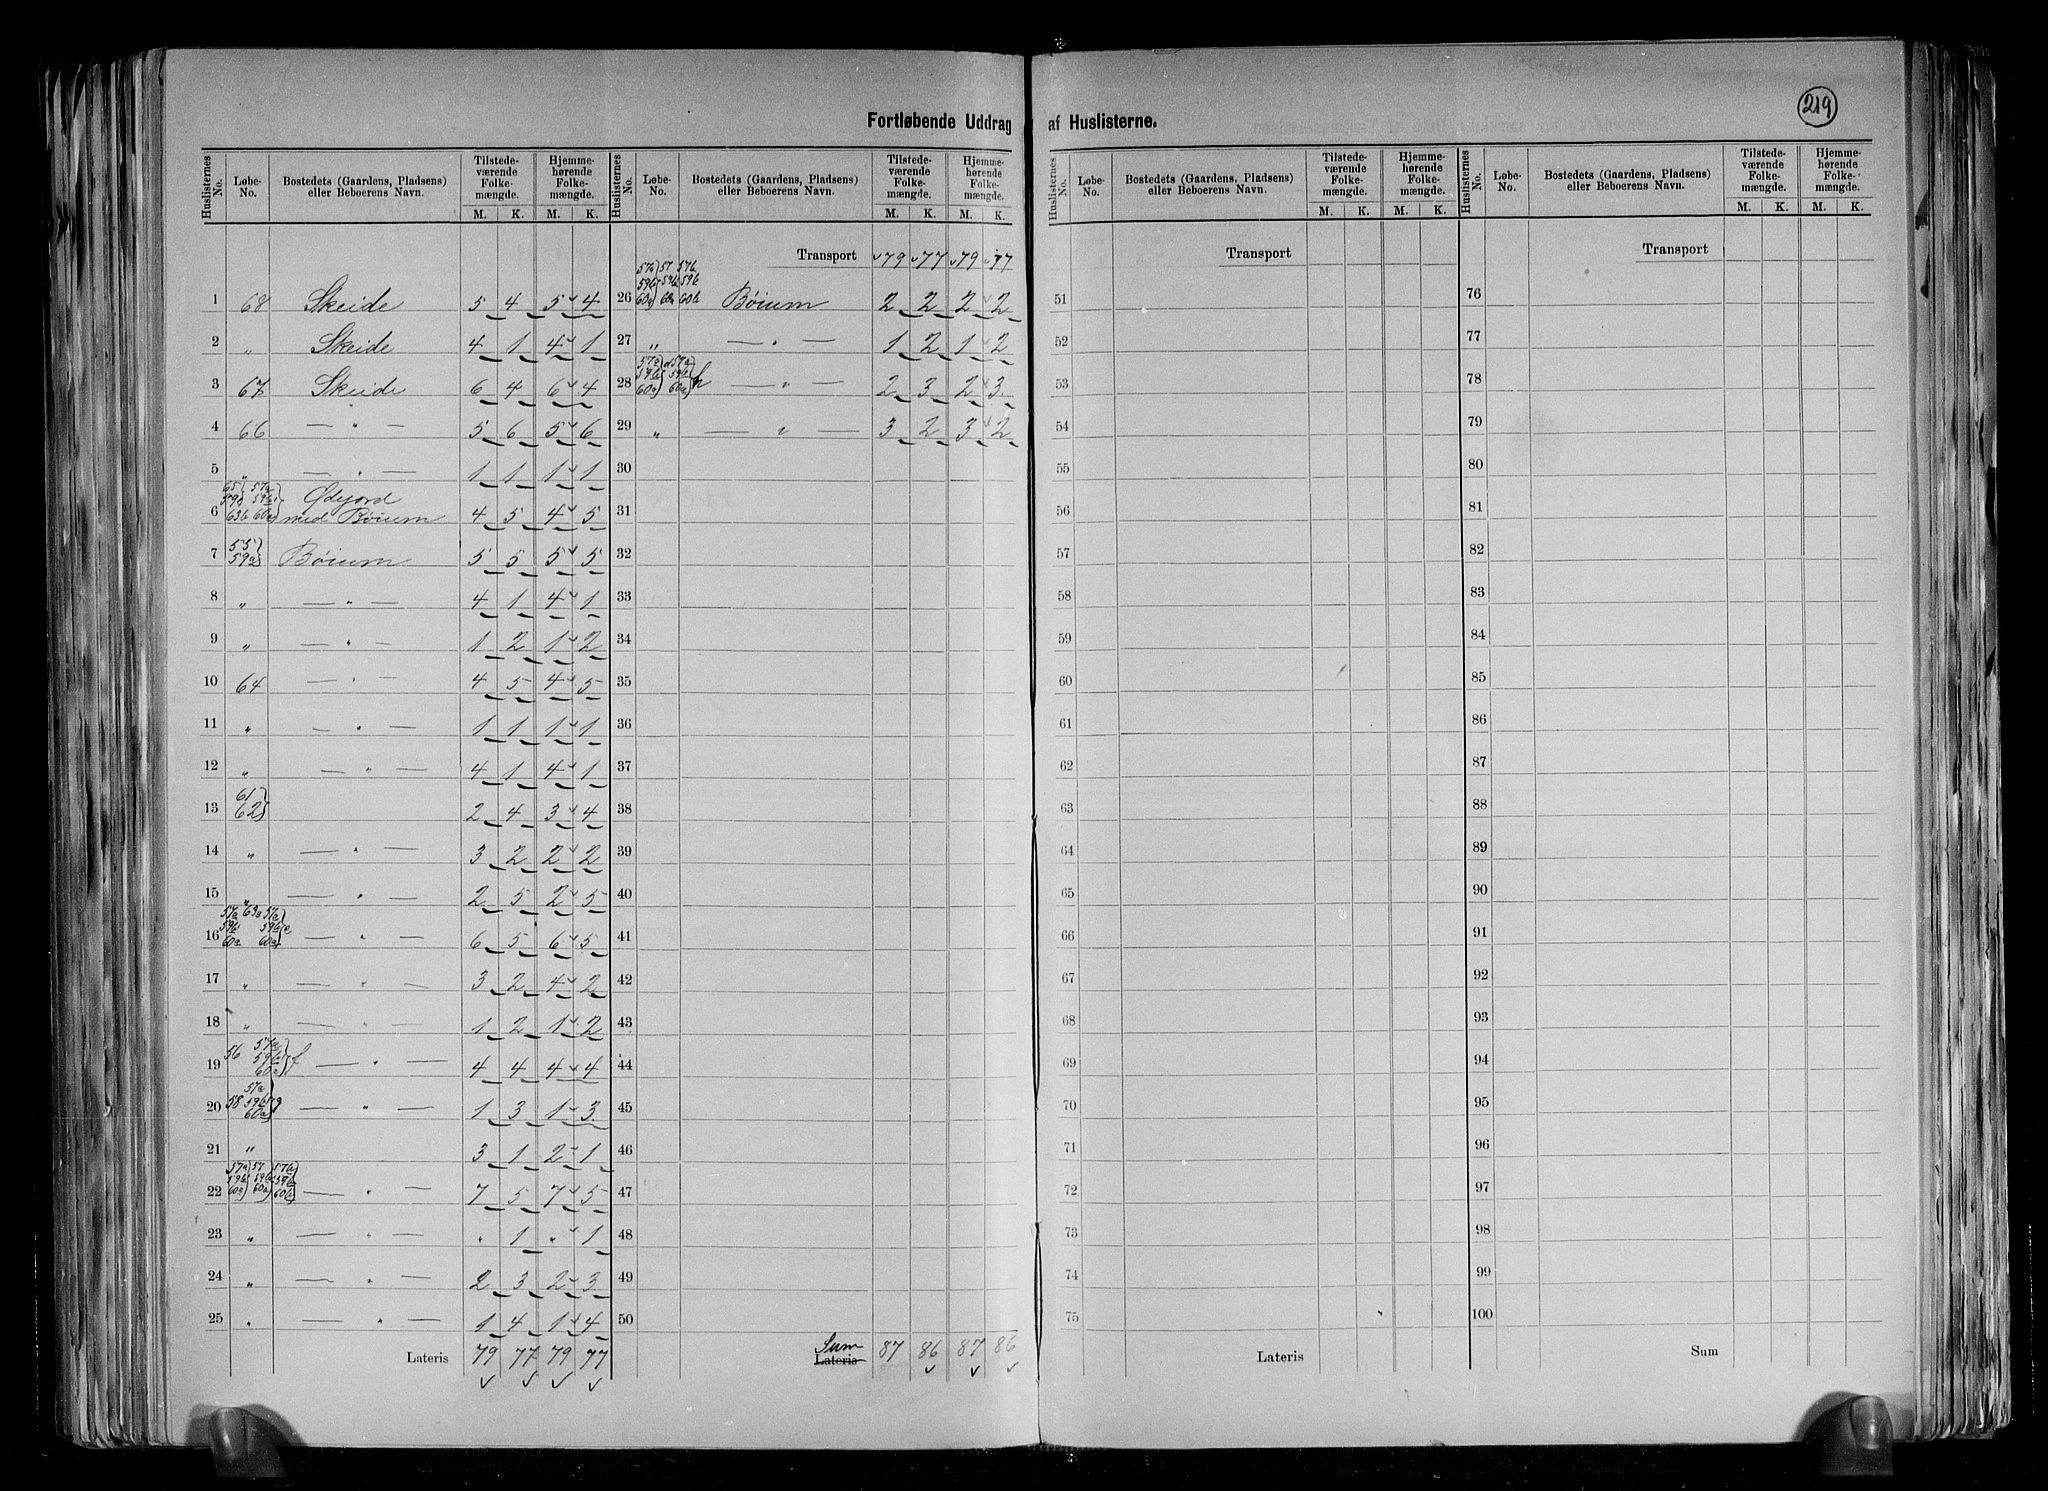 219
Fortløbende Uddrag af Huslisterne.
Huslisternes No. Løbe-No. Bostedets (Gaardens, Pladsens) eller Beboerens Navn. Tilstede-værende Folke-mængde. M. K. Hjemme-hørende Folke-mængde. M. K.
1 68 Skeide 5 4 5 4
2 „ Skeide 4 1 4 1
3 67 Skeide 6 4 6 4
4 66 — „ — 5 6 5 6
5 „ — „ — 1 1 1 1
6 Ødejord med Bøium 4 5 4 5
7 55 59a Bøium 5 5 5 5
8 „ — „ — 4 1 4 1
9 „ — „ — 1 2 1 2
10 64 — „ — 4 5 4 5
11 „ — „ — 1 1 1 1
12 „ — „ — 4 1 4 1
13 61 62 2 4 3 4
14 „ — „ — 3 2 2 2
15 „ — „ — 2 5 2 5
16 57a 63a 57a 59b 59b 60a 60a e — „ — 6 5 6 5
17 „ — „ — 3 2 4 2
18 „ — „ — 1 2 1 2
19 56 57a 59b 60a f — „ — 4 4 4 4
20 58 57a 59b 60a g — „ — 1 3 1 3
21 „ 3 1 2 1
22 57a 57 57b 59b 59b 59b 60a 60a 60b — „ — 7 5 7 5
23 „ — „ — „ 1 „ 1
24 „ — „ — 2 3 2 3
25 „ — „ — 1 4 1 4
Lateris 79 77 79 77
Huslisternes No. Løbe-No. Bostedets (Gaardens, Pladsens) eller Beboerens Navn. Tilstede-værende Folke-mængde. M. K. Hjemme-hørende Folke-mængde. M. K.
Transport 79 77 79 77
26 57a 57 57b 59b 59b 59b 60a 60a 60b Bøium 2 2 2 2
27 „ — „ — 1 2 1 2
28 57a 57a 59b 59b 60a 60a h — „ — 2 3 2 3
29 „ — „ — 3 2 3 2
30
31
32
33
34
35
36
37
38
39
40
41
42
43
44
45
46
47
48
49
50
Sum Lateris 87 86 87 86
Huslisternes No. Løbe-No. Bostedets (Gaardens, Pladsens) eller Beboerens Navn. Tilstede-værende Folke-mængde. M. K. Hjemme-hørende Folke-mængde. M. K.
Transport
51
52
53
54
55
56
57
58
59
60
61
62
63
64
65
66
67
68
69
70
71
72
73
74
75
Lateris
Huslisternes No. Løbe-No. Bostedets (Gaardens, Pladsens) eller Beboerens Navn. Tilstede-værende Folke-mængde. M. K. Hjemme-hørende Folke-mængde. M. K.
Transport
76
77
78
79
80
81
82
83
84
85
86
87
88
89
90
91
92
93
94
95
96
97
98
99
100
Sum